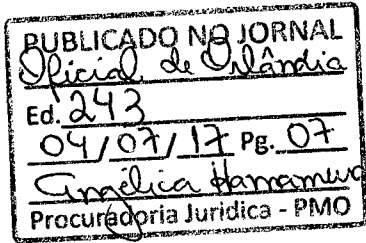 PUBLICADO NO JORNAL
Oficial de Orlândia
Ed. 243
04/07/17 Pg. 07
Angélica
Procuradoria Juridica - PMO